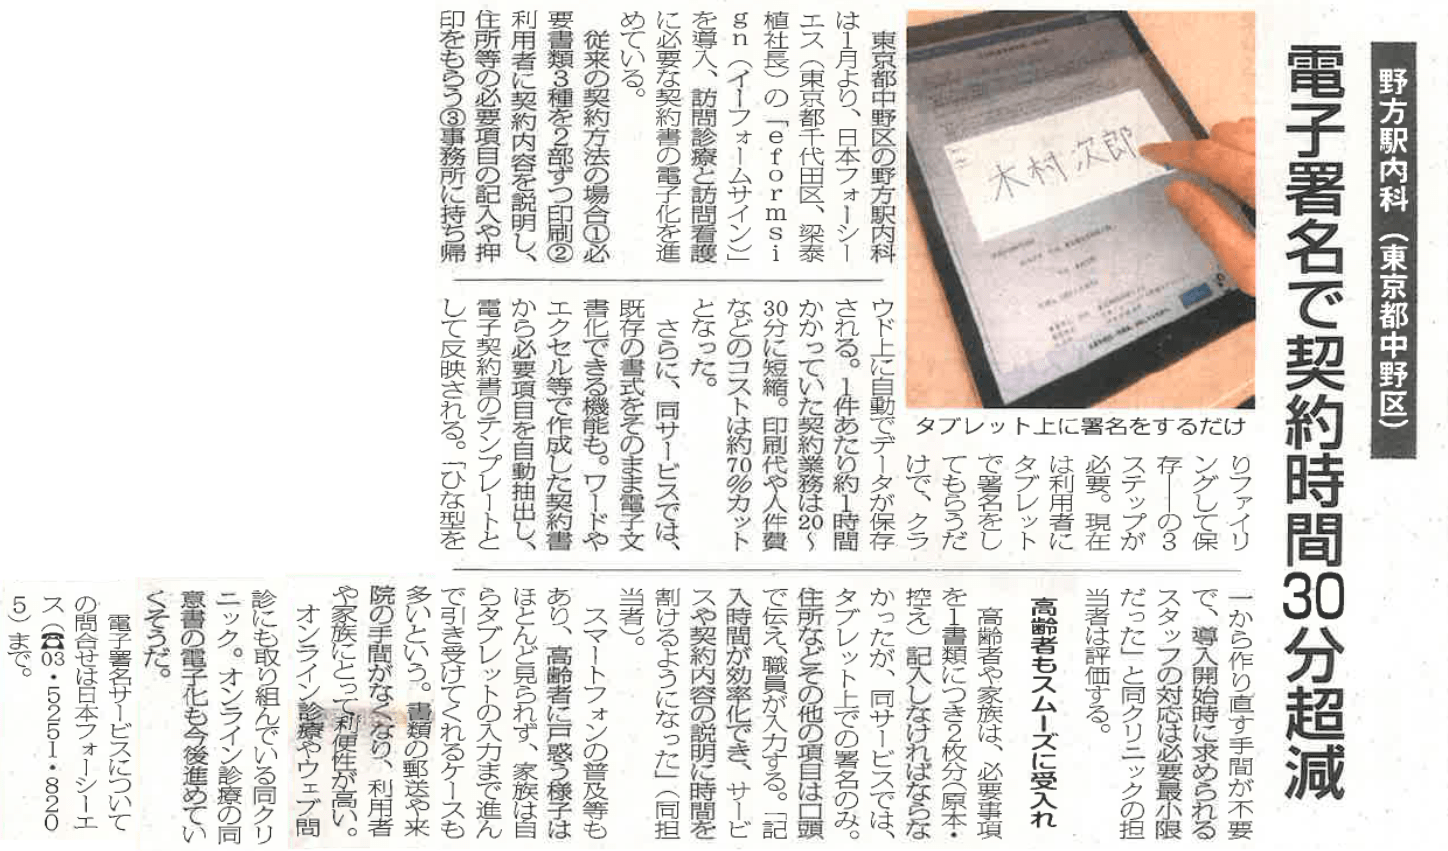 野方駅内科（東京都中野区）
電子署名で契約時間30分超減
木村次郎
タブレット上に署名をするだけ
東京都中野区の野方駅内科
は1月より、日本フォーシー
エス（東京都千代田区、梁泰
植社長）の「eformsi
gn（イーフォームサイン）」
を導入、訪問診療と訪問看護
に必要な契約書の電子化を進
めている。
従来の契約方法の場合①必
要書類3種を2部ずつ印刷②
利用者に契約内容を説明し、
住所等の必要項目の記入や押
印をもらう③事務所に持ち帰
りファイリ
ングして保
存――の3
ステップが
必要。現在
は利用者に
タブレット
で署名をし
てもらうだ
けで、クラ
ウド上に自動でデータが保存
される。1件あたり約1時間
かかっていた契約業務は20～
30分に短縮。印刷代や人件費
などのコストは約70％カット
となった。
さらに、同サービスでは、
既存の書式をそのまま電子文
書化できる機能も。ワードや
エクセル等で作成した契約書
から必要項目を自動抽出し、
電子契約書のテンプレートと
して反映される。「ひな型を
一から作り直す手間が不要
で、導入開始時に求められる
スタッフの対応は必要最小限
だった」と同クリニックの担
当者は評価する。
高齢者もスムーズに受入れ
高齢者や家族は、必要事項
を1書類につき2枚分（原本・
控え）記入しなければならな
かったが、同サービスでは、
タブレット上での署名のみ。
住所などその他の項目は口頭
で伝え、職員が入力する。「記
入時間が効率化でき、サービ
スや契約内容の説明に時間を
割けるようになった」（同担
当者）。
スマートフォンの普及等も
あり、高齢者に戸惑う様子は
ほとんど見られず、家族は自
らタブレットの入力まで進ん
で引き受けてくれるケースも
多いという。書類の郵送や来
院の手間がなくなり、利用者
や家族にとって利便性が高い。
オンライン診療やウェブ問
診にも取り組んでいる同クリ
ニック。オンライン診療の同
意書の電子化も今後進めてい
くそうだ。
電子署名サービスについて
の問合せは日本フォーシーエ
ス（☎03・5251・820
5）まで。